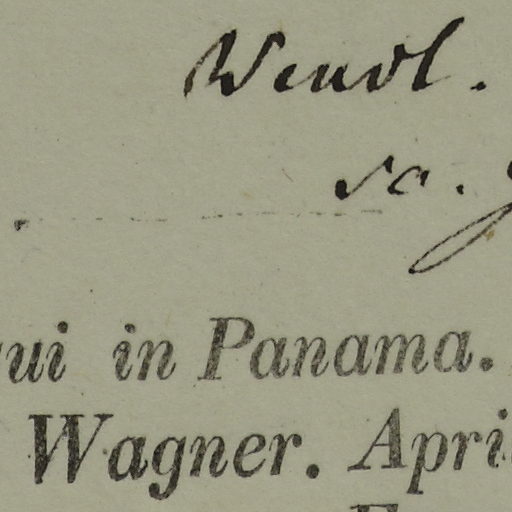 Wendl.
sc.
ui in Panama.
Wagner. Apri